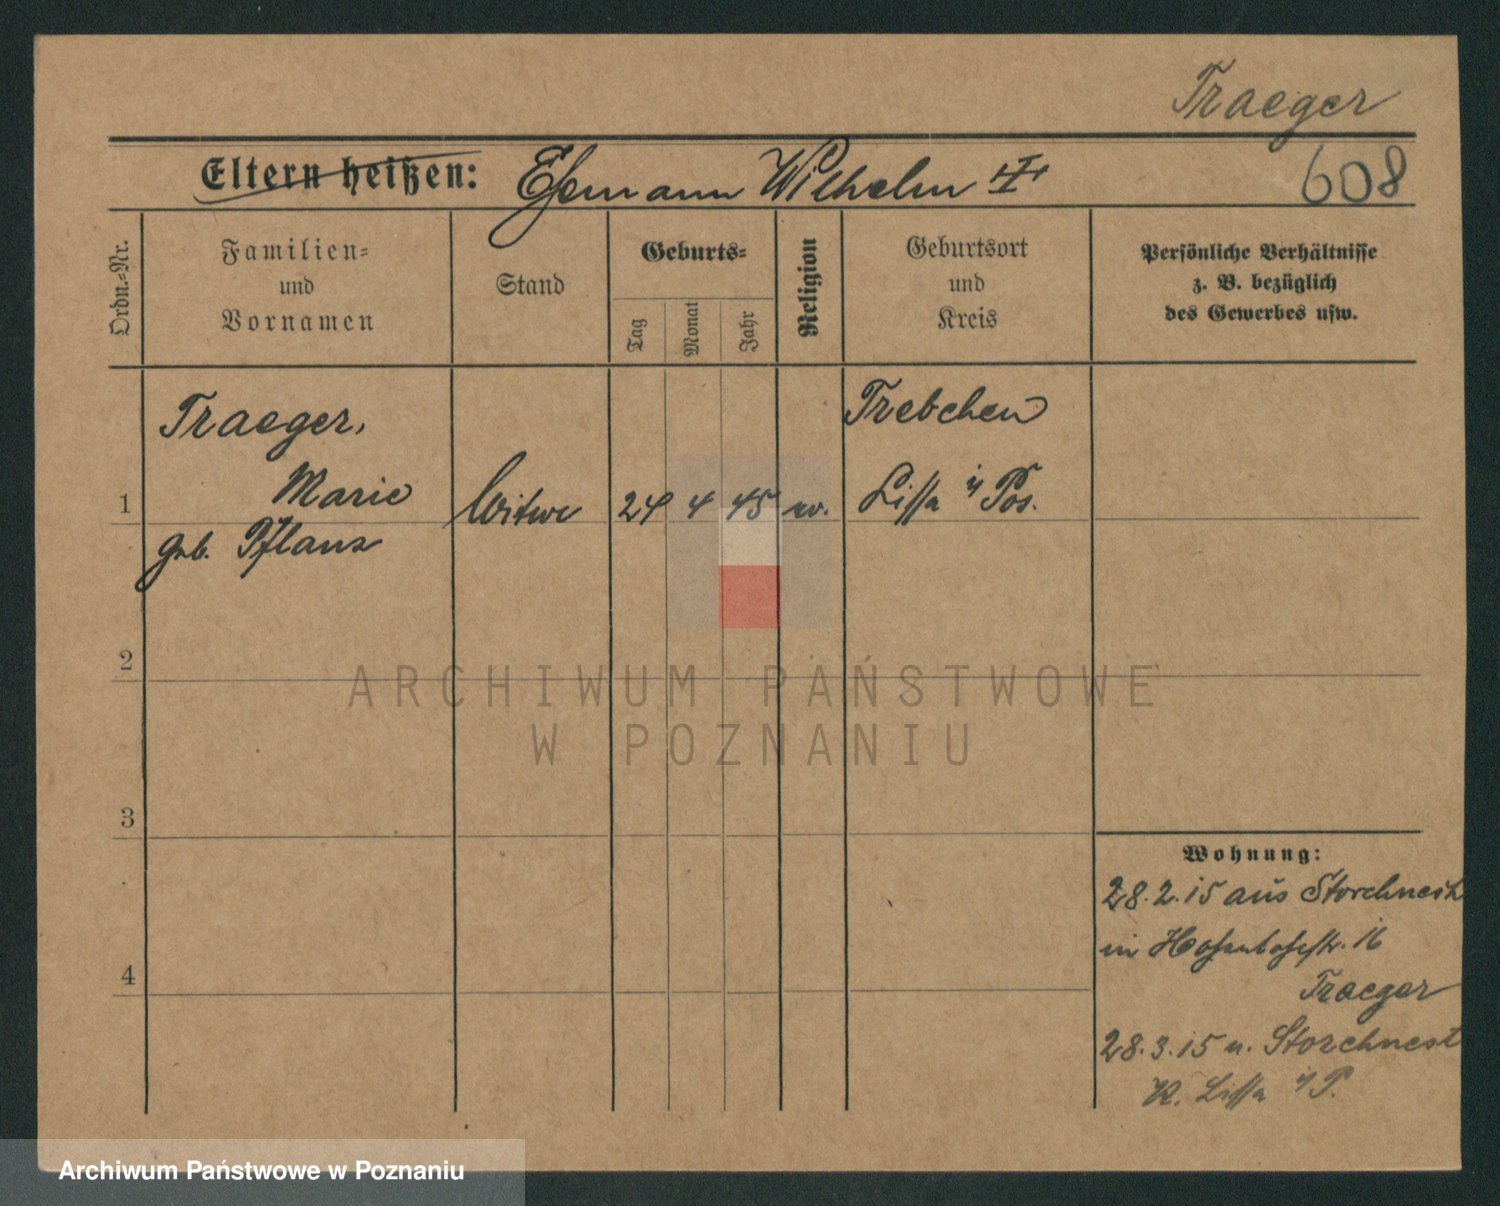 Traeger
608
Eltern heißen: Ehemann Wilhelm
Ordn.-Nr.
Familien-
und
Vornamen
Stand
Geburts-
Tag
Monat
Jahr
Religion
Geburtsort
und
Kreis
Persönliche Verhältnisse
z. B. bezüglich
des Gewerbes usw.
Traeger,
Trebchen
1 Marie Witwe 24 4 45 ev. Lissa i/ Pos.
geb. Pflanz
2
ARCHIWUM PAŃSTWOWE
W POZNANIU
3
Wohnung:
28.2.15 aus Storchnest
in 16
4
Traeger
28.3.15 n. Storchnest
K. Lissa i/P.
Archiwum Państwowe w Poznaniu